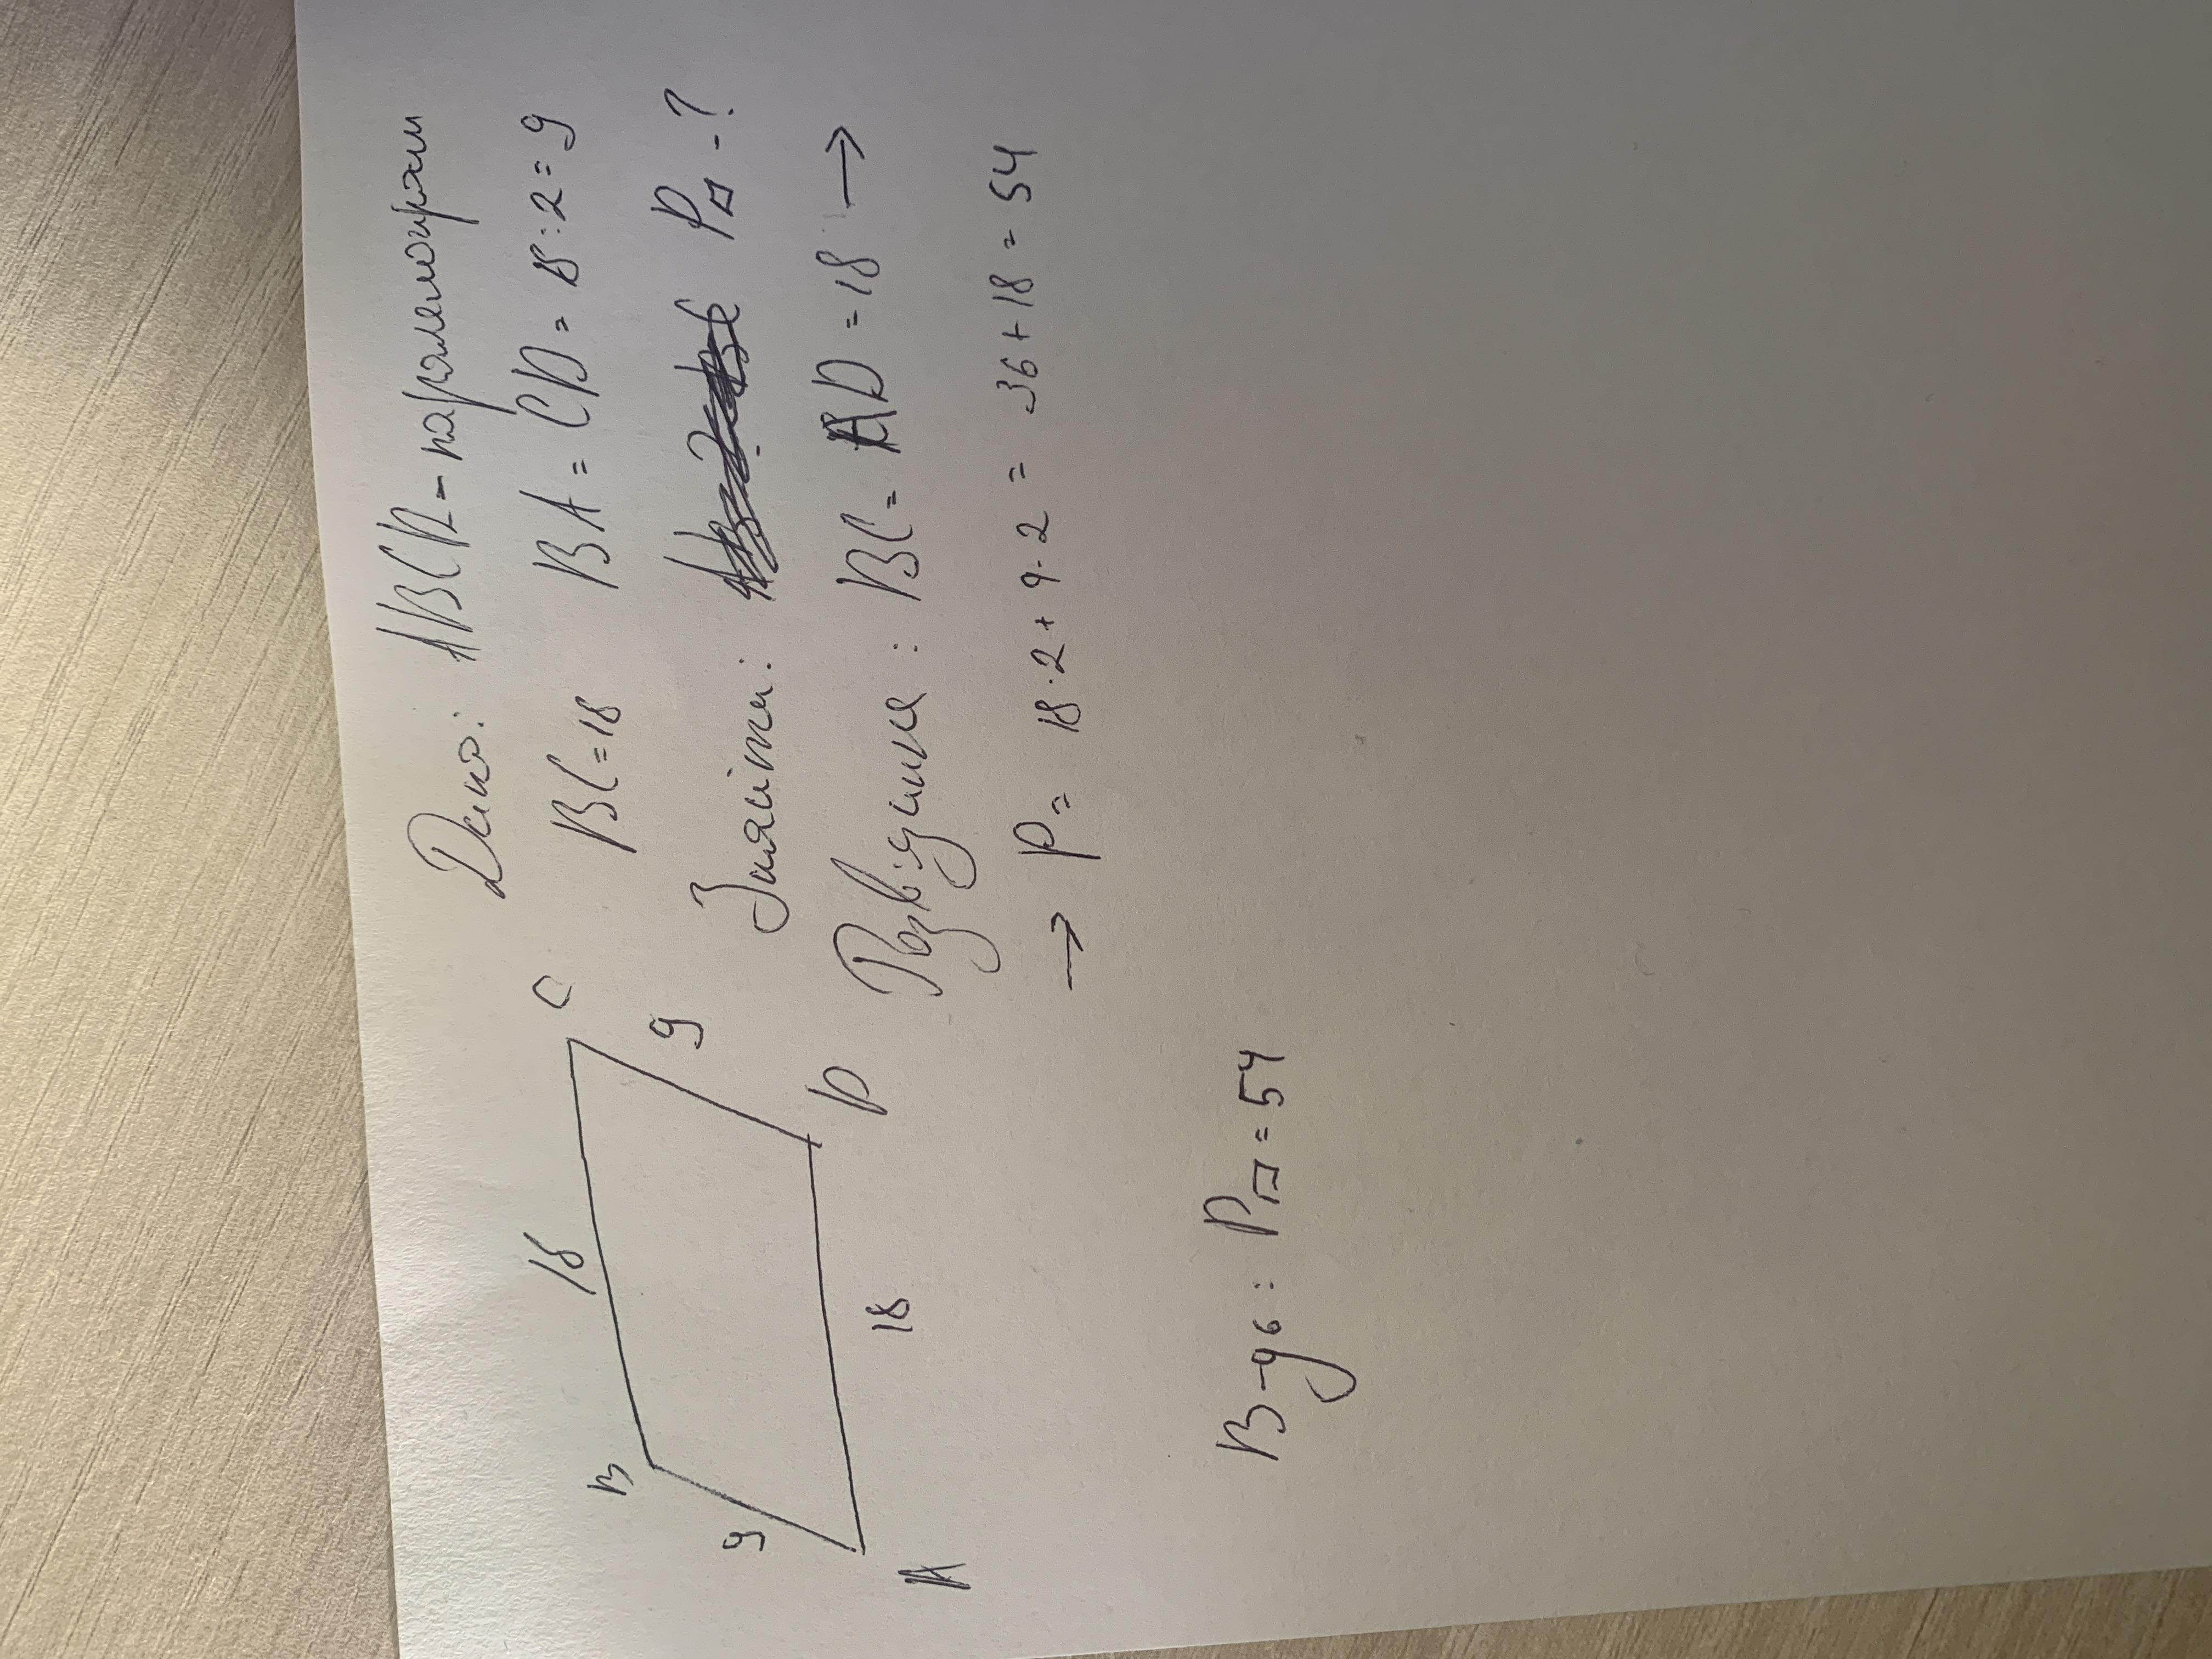 Дано: ABCD - паралелограм
BC = 18 BA = CD = 18 : 2 = 9
Знайти: P▱ - ?
Розв'язання: BC = AD = 18 →
→ P = 18 · 2 + 9 · 2 = 36 + 18 = 54
B 18 C
9 9
A 18 D
В-дь: P▱ = 54